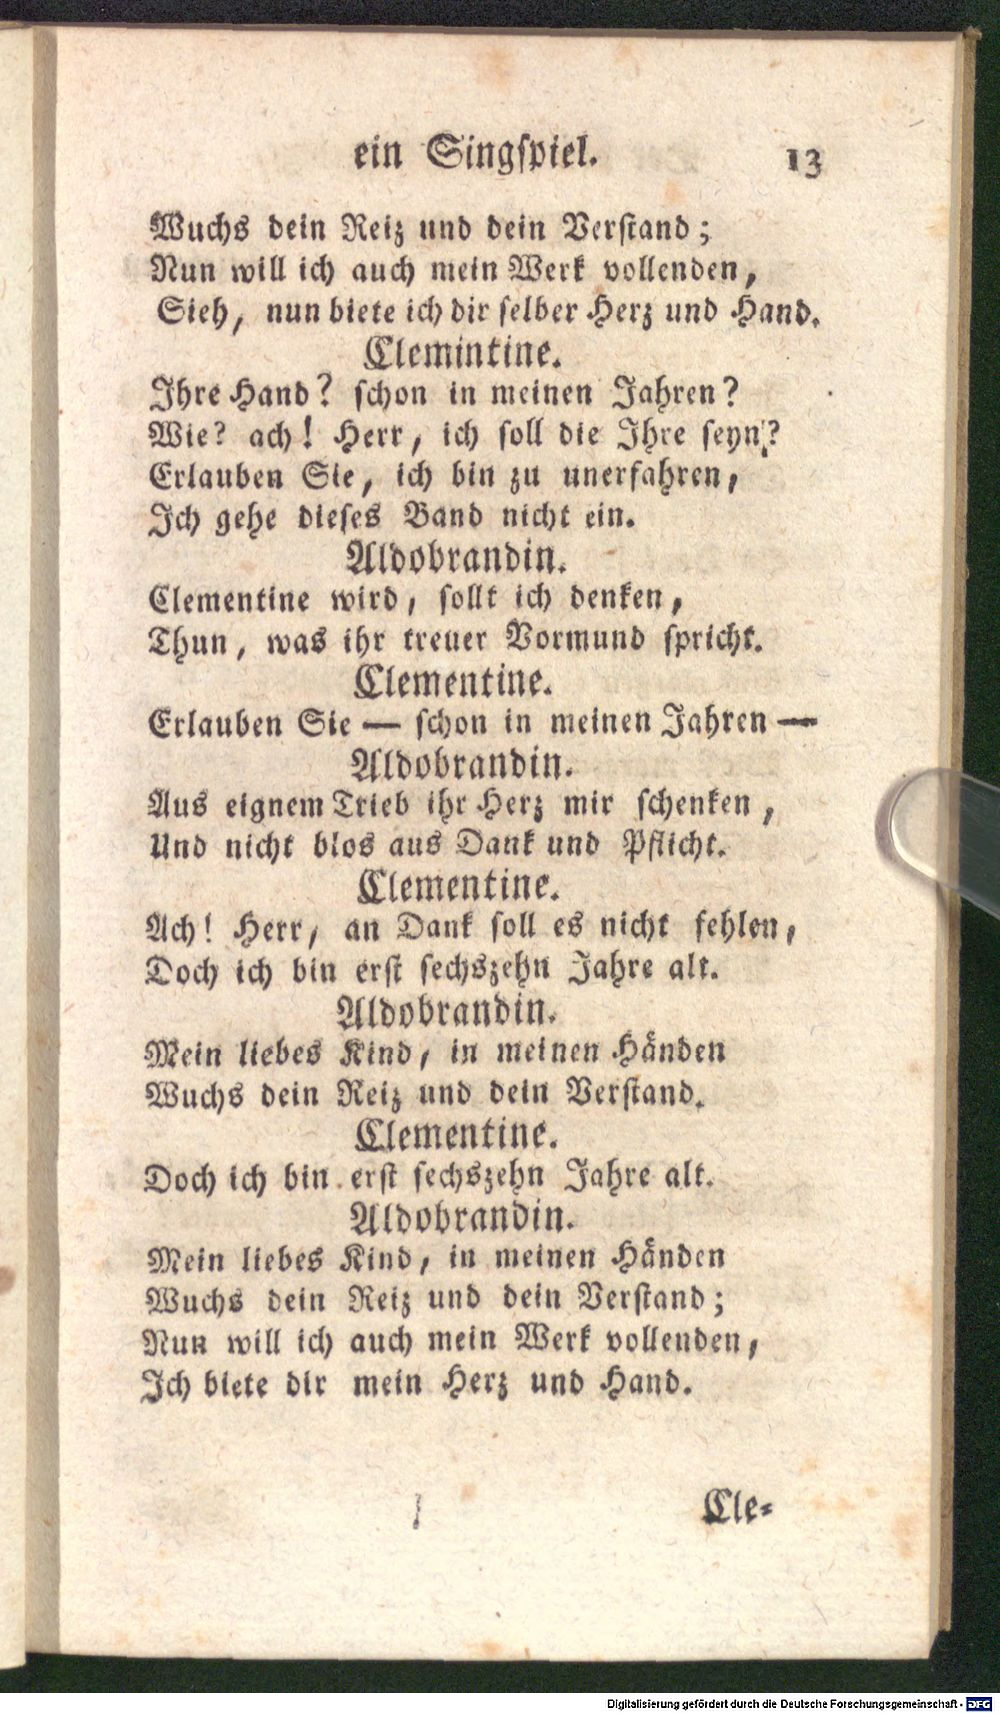 ein Singspiel. 13
Wuchs dein Reiz und dein Verstand;
Nun will ich auch mein Werk vollenden,
Sieh, nun biete ich dir selber Herz und Hand.
Clemintine.
Ihre Hand? schon in meinen Jahren?
Wie? ach! Herr, ich soll die Ihre seyn?
Erlauben Sie, ich bin zu unerfahren,
Ich gehe dieses Band nicht ein.
Aldobrandin.
Clementine wird, sollt ich denken,
Thun, was ihr treuer Vormund spricht.
Clementine.
Erlauben Sie — schon in meinen Jahren —
Aldobrandin.
Aus eignem Trieb ihr Herz mir schenken,
Und nicht blos aus Dank und Pflicht.
Clementine.
Ach! Herr, an Dank soll es nicht fehlen,
Doch ich bin erst sechszehn Jahre alt.
Aldobrandin.
Mein liebes Kind, in meinen Händen
Wuchs dein Reiz und dein Verstand.
Clementine.
Doch ich bin erst sechszehn Jahre alt.
Aldobrandin.
Mein liebes Kind, in meinen Händen
Wuchs dein Reiz und dein Verstand;
Nun will ich auch mein Werk vollenden,
Ich biete dir mein Herz und Hand.
Cle-
Digitalisierung gefördert durch die Deutsche Forschungsgemeinschaft - DFG